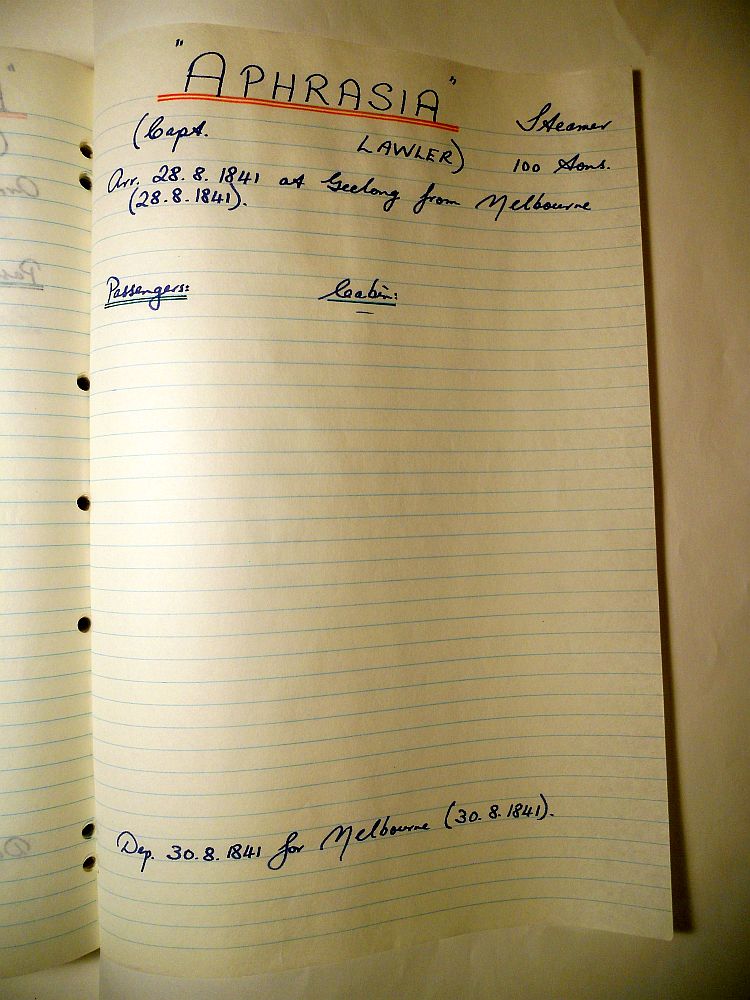 "APHRASIA"
Steamer
(Capt. LAWLER) 100 tons.
Arr. 28.8.1841 at Geelong from Melbourne
(28.8.1841).
Passengers: Cabin:
Dep. 30.8.1841 for Melbourne (30.8.1841).